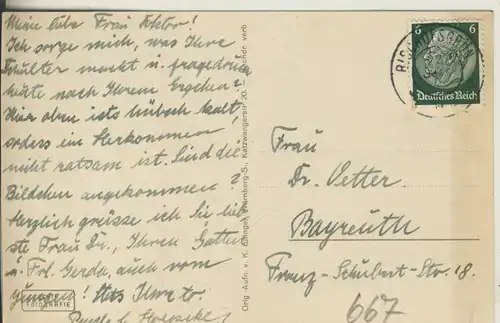 Meine liebe Frau Doktor!
Ich sorge mich, was Ihre
Schulter macht u. frage drum
heute nach Ihrem Ergehen?
Hier oben ists hübsch kalt,
sodass ein Herkommen
nicht ratsam ist. Sind die
Bildchen angekommen?
Herzlich grüsse ich Sie lieb-
ste Frau Dr., Ihren Gatten
u. Frl. Gerda, auch vom
Jungen! Stets Ihre tr.
Orig.-Aufn. v. K. Nürnberg-S., Katzwangerstr. 20 verb
6 6
Deutsches Reich
Frau
Dr. Vetter
Bayreuth
Franz-Schubert-Str. 18.
667